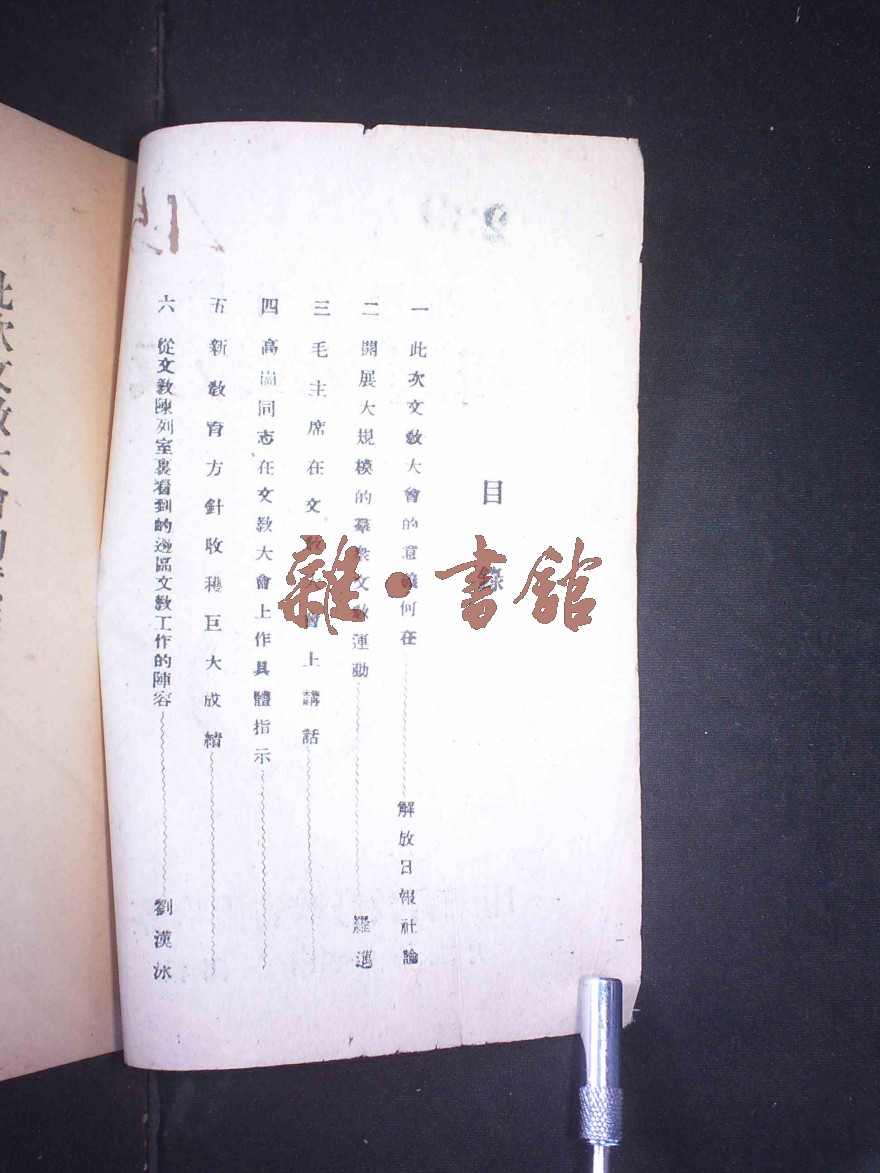 目錄
一 此次文教大會的意義何在 解放日報社論
二 開展大規模的羣衆文教運動 羅邁
三 毛主席在文教大會上講話
四 高崗同志在文教大會上作具體指示
五 新教育方針收穫巨大成績
六 從文教陳列室裏看到的邊區文教工作的陣容 劉漢泳
雜·書館